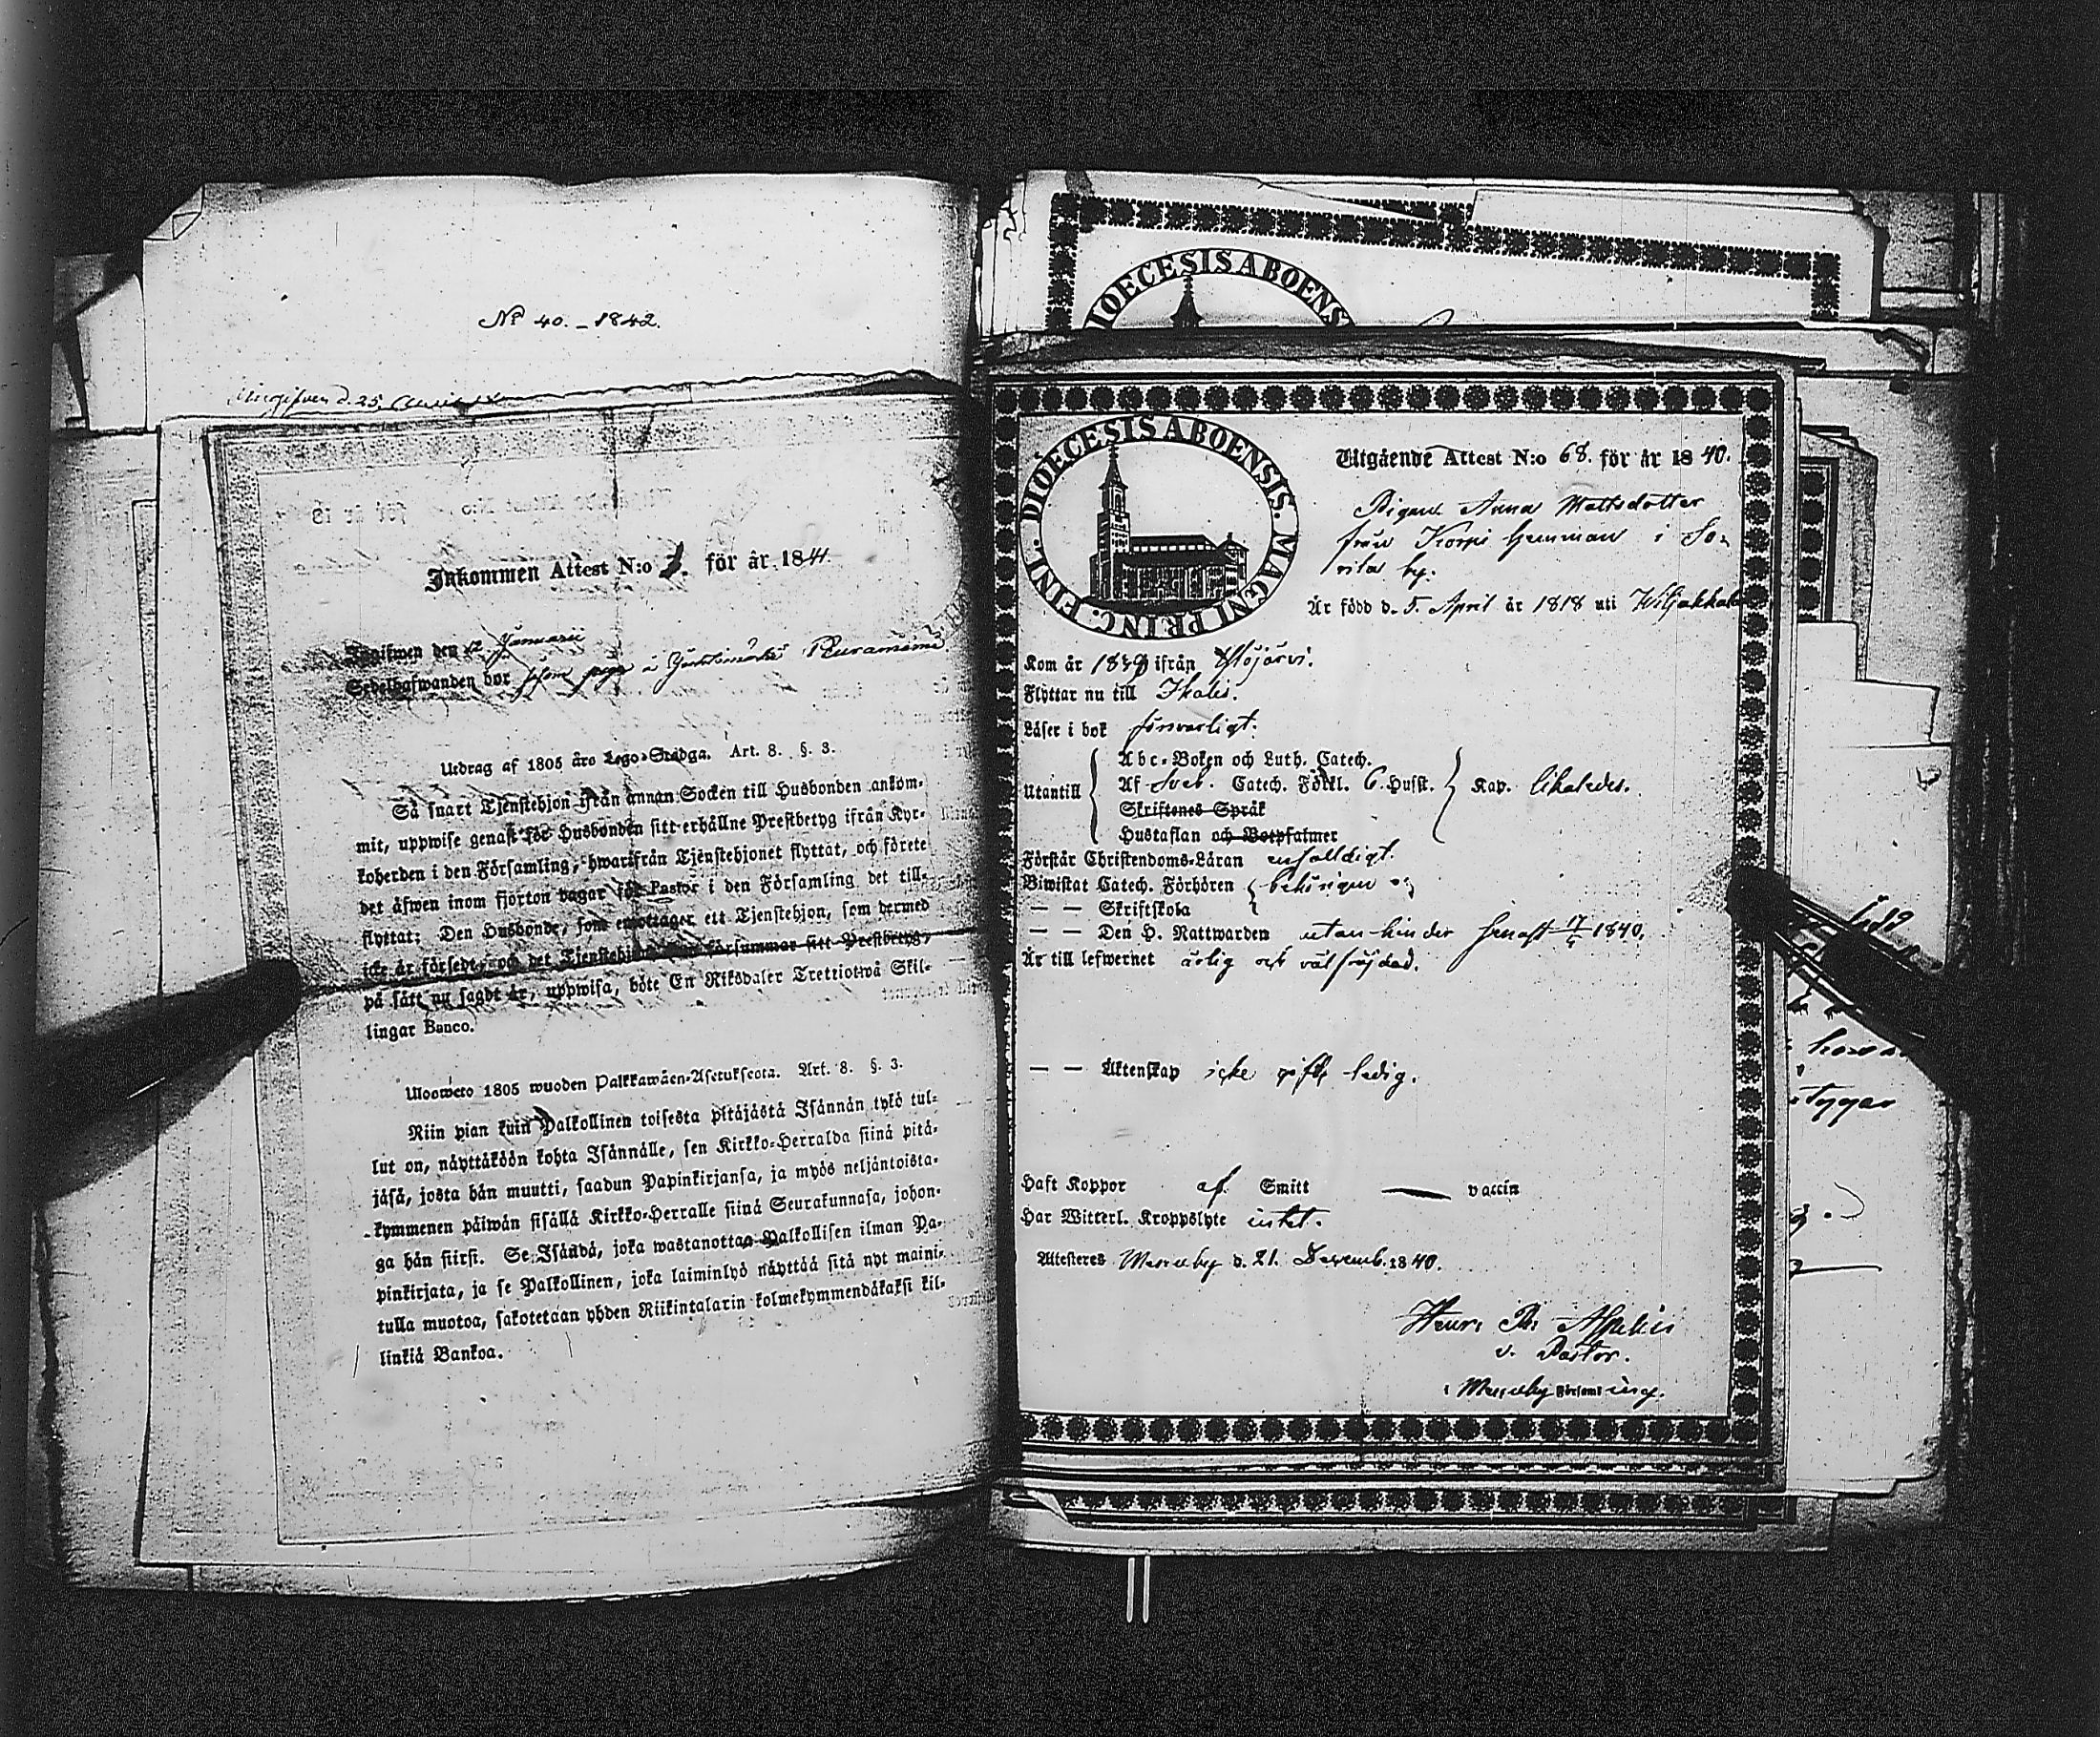 No 40. – 1842.
Ingifven d. 25
Inkommen Attest N:o 1. för år 1841.
Ingifwen den 12 Januarii
Sedelhafwanden bor såsom piga å
Utdrag af 1805 års Lego-Stadga. Art. 8. §. 3.
Så snart Tjenstehjon ifrån annan Socken till Husbonden ankom-
mit, uppwise genast för Husbonden sitt erhållne Prestbetyg ifrån Kyr-
koherden i den Församling, hwarifrån Tjenstehjonet flyttat, och förete
det äfwen inom fjorton dagar för Pastor i den Församling det till-
flyttat; Den Husbonde, som emottager ett Tjenstehjon, som dermed
icke är försedt, och det Tjenstehjon försummar sitt Prestbetyg,
på sätt nu sagdt är, uppwisa, böte En Riksdaler Trettiotwå Skil-
lingar Banco.
Ulosweto 1805 wuoden Palkkawäen-Asetuksesta. Art. 8. §. 3.
Niin pian kuin Palkollinen toisesta pitäjästä Isännän tykö tul-
lut on, näyttäköön kohta Isännälle, sen Kirkko-Herralda siinä pitä-
jäsä, josta hän muutti, saadun Papinkirjansa, ja myös neljäntoista-
kymmenen päiwän sisällä Kirkko-Herralle siinä Seurakunnasa, johon-
ga hän siirsi. Se Isändä, joka wastanottaa Palkollisen ilman Pa-
pinkirjata, ja se Palkollinen, joka laiminlyö näyttää sitä nyt maini-
tulla muotoa, sakotetaan yhden Riikintalarin kolmekymmendäkaksi kil-
linkiä Bankoa.
DIOECESIS ABOENS
DIOECESIS ABOENSIS. MAGNI PRINC. FINL.
Utgående Attest N:o 68. för år 1840.
Pigan Anna Mattsdotter
från Korpi hemman i So-
rila by.
Är född d. 5. April år 1818 uti Wiljakkala
Kom år 1839 ifrån Ylöjärvi.
Flyttar nu till Ikalis.
Läser i bok försvarligt.
Utantill Abc-Boken och Luth. Catech.
Af Sveb. Catech. Förkl. 6. Husst. Kap. likaledes.
Skriftenes Språk
Hustaflan och Botpsalmer
Förstår Christendoms-Läran enfaldigt.
Biwistat Catech. Förhören behörigen
— — Skriftskola
— — Den H. Nattwarden utan hinder senast 17/5 1840.
Är till lefwernet ärlig och välfrejdad.
— — Äktenskap icke gift, ledig.
Haft Koppor af Smitt — vaccin
Har Witterl. Kroppslyte intet.
Attesteres Messuby d. 21. Decemb. 1840.
Henr. 
v. Pastor.
i Messuby Församling.